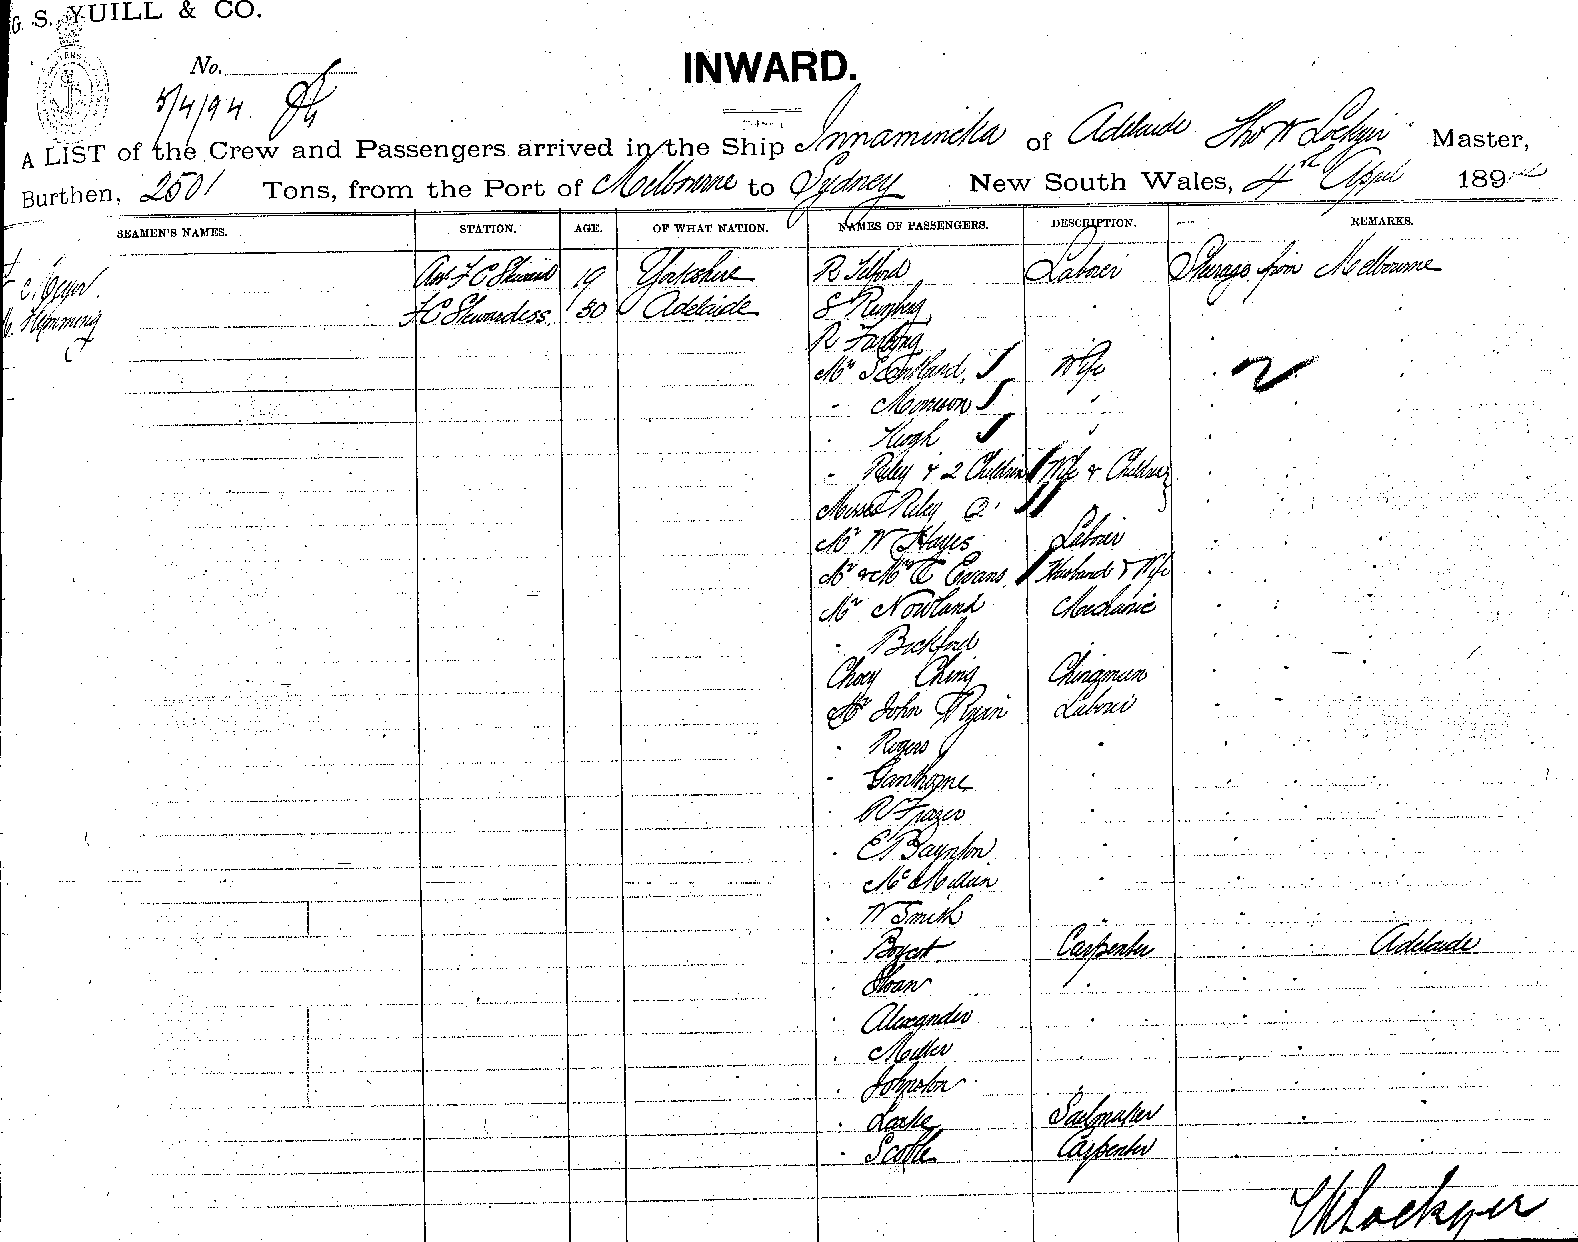 G. S. YUILL & CO.
No.
INWARD.
5/4/94
A LIST of the Crew and Passengers arrived in the Ship Innamincka of Adelaide Thos W Lockyer Master,
Burthen, 2501 Tons, from the Port of Melbourne to Sydney New South Wales, 4th April 189
SEAMEN'S NAMES. STATION. AGE. OF WHAT NATION. NAMES OF PASSENGERS. DESCRIPTION. REMARKS.
F C Steward 19 Yorkshire R Telford Labourer Steerage from Melbourne
Hemming F C Stewardess 30 Adelaide S "
R "
Mrs Scotland Wife "
" Morrison " "
" Keogh " "
" Riley & 2 Children Wife & Children "
Misses Riley 2 "
Mr W Hayes Labourer "
Mr & Mrs E Evans Husband & Wife "
Mr Nowland Mechanic " "
" Bickford " "
Choey Ching Chinaman " "
Mr John Labourer " "
" Rogers " "
" Ganthorpe " "
" R Frazer " "
" E Baynton " "
" McMillan " "
" W Smith " "
" Carpenter " " Adelaide
" Swan " " "
" Alexander " " "
" Miller " "
" Johnston " "
" Locke Sailmaker " "
" Scoble Carpenter " "
Lockyer